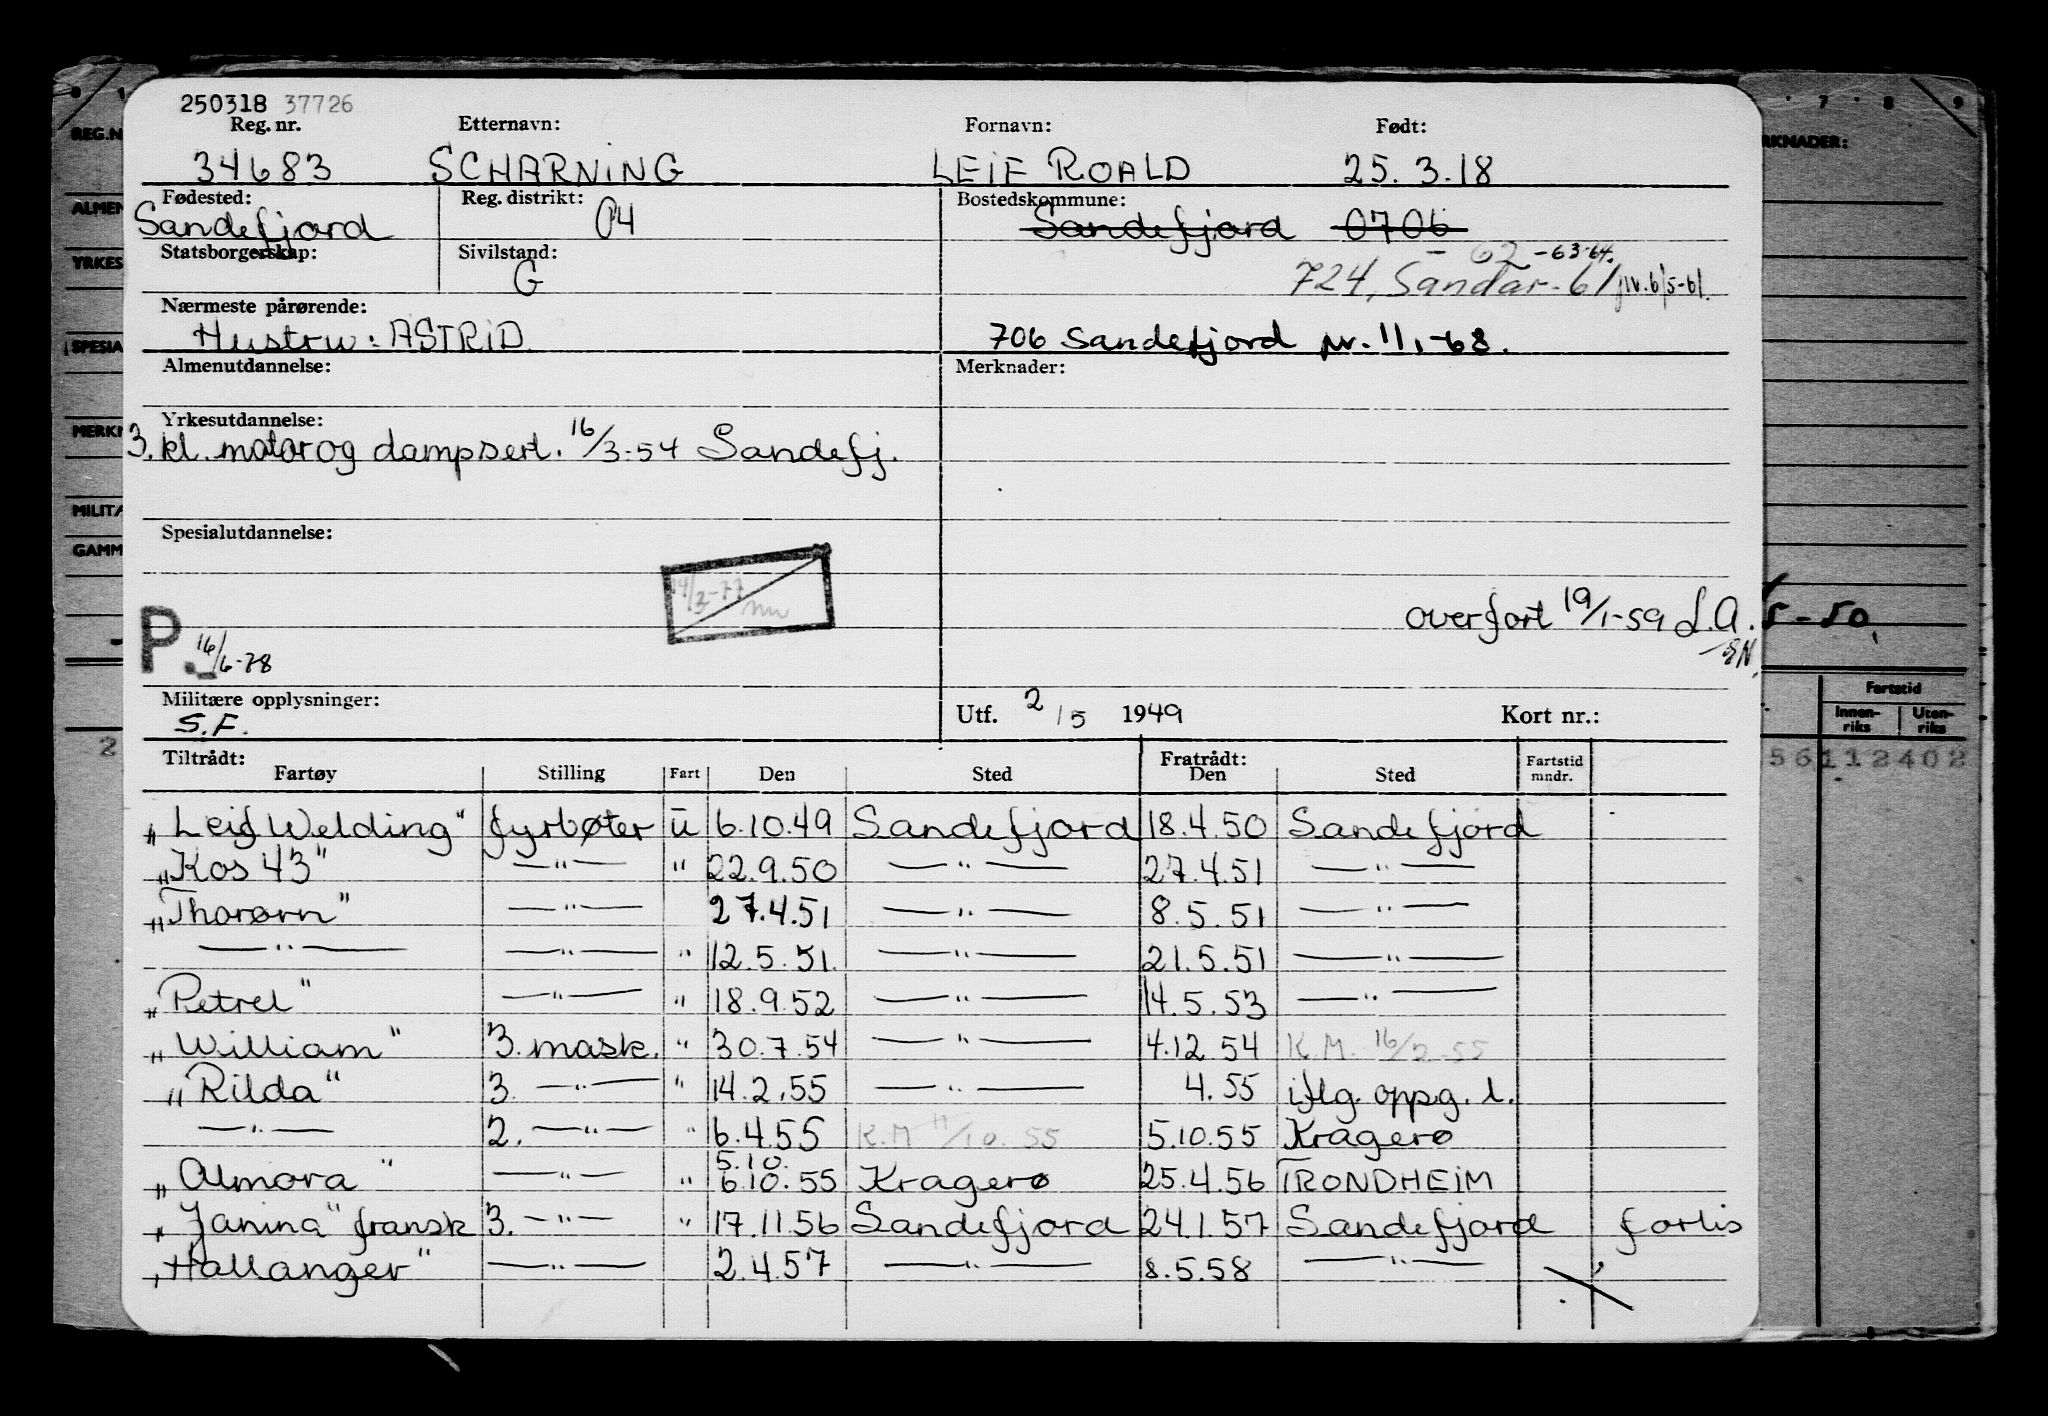 250318 37726
Reg. nr. Etternavn: Fornavn: Født:
34683 SCHARNING LEIF ROALD 25. 3.18
Fødested: Reg. distrikt: Bostedskommune:
Sandefjord 04 Sandefjord 0706
Statsborgerskap: Sivilstand: - 62 -63-64.
G 724, Sandar - 61
Nærmeste pårørende:
Hustru: ASTRID 706 Sandefjord pr. 11,-68.
Almenutdannelse: Merknader:
Yrkesutdannelse:
3. kl. motor og dampsert. 16/3-54 Sandefj.
Spesialutdannelse:
P. 16/6-78
overført 19/1-59 L.A.
5-50
Militære opplysninger: Utf. 2/5 1949 Kort nr.:
S.F.
Tiltrådt: Fratrådt:
Fartøy Stilling Fart Den Sted Den Sted Fartstid mndr.
"Leif Welding" fyrbøter u 6.10.49 Sandefjord 18.4.50 Sandefjord
"Kos 43" —"— " 22.9.50 —"— 27.4.51 —"—
"Thorørn" —"— 27.4.51 —"— 8.5.51 —"—
—"— —"— " 12.5.51. —"— 21.5.51 —"—
"Petrel" —"— " 18.9.52 —"— 14.5.53 —"—
"William" 3. mask. " 30.7.54 —"— 4.12.54 K.M. 16/2-55
"Rilda" 3. —"— " 14.2.55 —"— 4.55 iflg. oppg. l.
—"— 2. —"— " 6.4.55 K.M 11/10.55 5.10.55 Kragerø
5.10.
"Almora" —"— " 6.10.55 Kragerø 25.4.56 TRONDHEIM
"Janina" fransk 3. —"— " 17.11.56 Sandefjord 24.1.57 Sandefjord forlis
"Hallanger" —"— 2.4.57 —"— 8.5.58 —"—
REG.N
ALMEN
YRKES
SPESIA
MERKN
MILITÆ
GAMM
2
7 8 9
RKNADER:
Fartstid
Innen-riks Uten-riks
56112402